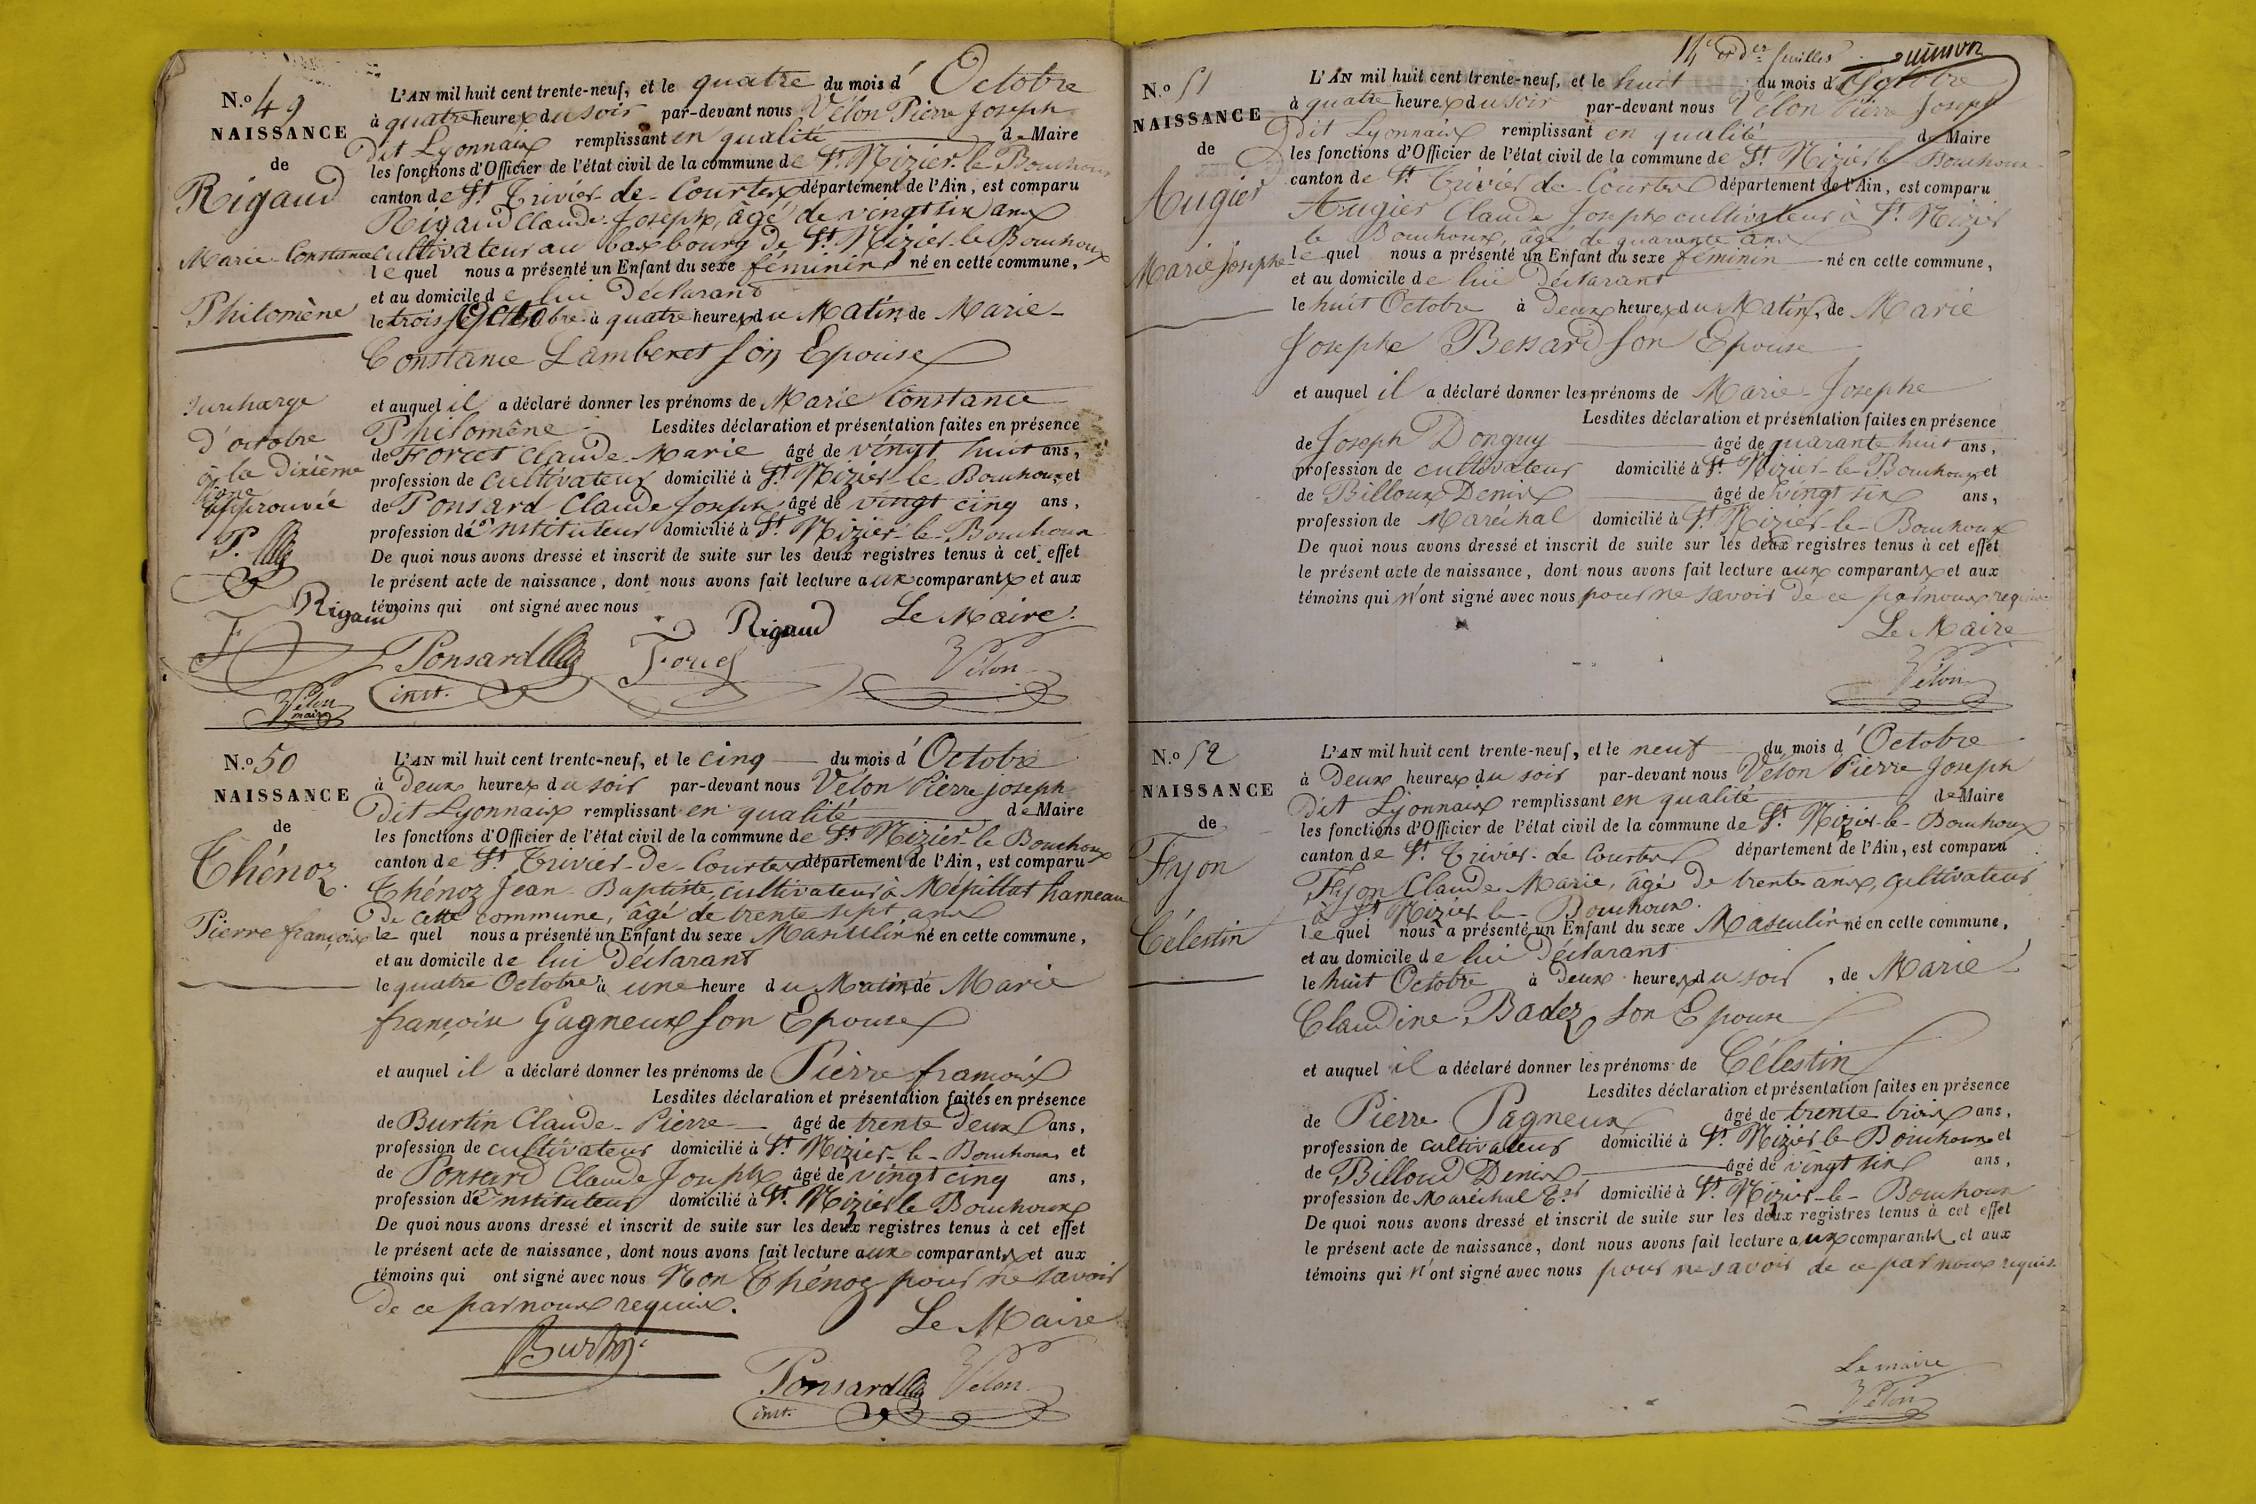 N.o 49
NAISSANCE
de
Rigaud
Marie-Constance
Philomène
Surcharge
d'octobre
à la dixième
ligne
approuvée
P.
Rigaud
F
Vélon
maire
L'AN mil huit cent trente-neuf, et le quatre du mois d' Octobre
à quatre heures du soir par-devant nous Vélon Pierre Joseph
dit Lyonnais remplissant en qualité de Maire
les fonctions d'Officier de l'état civil de la commune de St. Nizier-le-Bouchoux
canton de St. Trivier-de-Courtes département de l'Ain, est comparu
Rigaud Claude-Joseph, âgé de vingt six ans
cultivateur au bas bourg de St. Nizier-le-Bouchoux
le quel nous a présenté un Enfant du sexe féminin né en cette commune,
et au domicile de lui Déclarant
le trois Octobre à quatre heures du Matin, de Marie-
Constance Lamberet son Epouse
et auquel il a déclaré donner les prénoms de Marie Constance
Philomène Lesdites déclaration et présentation faites en présence
de Foret Claude-Marie âgé de vingt huit ans,
profession de cultivateur domicilié à St. Nizier-le-Bouchoux et
de Ponsard Claude Joseph âgé de vingt cinq ans,
profession d'instituteur domicilié à St. Nizier-le-Bouchoux
De quoi nous avons dressé et inscrit de suite sur les deux registres tenus à cet effet
le présent acte de naissance, dont nous avons fait lecture aux comparants et aux
témoins qui ont signé avec nous
Rigaud Le Maire
Ponsard Foret Vélon
inst.
N.o 50
NAISSANCE
de
Thénoz
Pierre françois
L'AN mil huit cent trente-neuf, et le cinq du mois d' Octobre
à Deux heures du soir par-devant nous Vélon Pierre joseph
dit Lyonnais remplissant en qualité de Maire
les fonctions d'Officier de l'état civil de la commune de St. Nizier-le-Bouchoux
canton de St. Trivier-de-Courtes département de l'Ain, est comparu
Thénoz Jean-Baptiste, cultivateur à Mépillat hameau
De cette commune, âgé de trente sept ans
le quel nous a présenté un Enfant du sexe Masculin né en cette commune,
et au domicile de lui déclarant
le quatre Octobre à une heure du Matin, de Marie
françoise Gagneux son Epouse
et auquel il a déclaré donner les prénoms de Pierre françois
Lesdites déclaration et présentation faites en présence
de Burtin Claude-Pierre âgé de trente deux ans,
profession de cultivateur domicilié à St. Nizier-le-Bouchoux et
de Ponsard Claude Joseph âgé de vingt cinq ans,
profession d'instituteur domicilié à St. Nizier le Bouchoux
De quoi nous avons dressé et inscrit de suite sur les deux registres tenus à cet effet
le présent acte de naissance, dont nous avons fait lecture aux comparants et aux
témoins qui ont signé avec nous Non Thénoz pour ne savoir
De ce par nous requis.
Le Maire
Burtin
Ponsard Vélon
inst.
14e et der feuillet
N.o 51
NAISSANCE
de
Augier
Marie Josephe
L'AN mil huit cent trente-neuf, et le huit du mois d' Octobre
à quatre heures du soir par-devant nous Vélon Pierre Joseph
Dit Lyonnais remplissant en qualité de Maire
les fonctions d'Officier de l'état civil de la commune de St. Nizier le-Bouchoux
canton de St. Trivier de Courtes département de l'Ain, est comparu
Augier Claude Joseph cultivateur à St. Nizier
le Bouchoux, âgé de quarante ans
le quel nous a présenté un Enfant du sexe féminin né en cette commune,
et au domicile de lui Déclarant
le huit Octobre à Deux heures du Matin, de Marie
Josephe Bessard son Epouse
et auquel il a déclaré donner les prénoms de Marie-Josephe
Lesdites déclaration et présentation faites en présence
de Joseph Donguy âgé de quarante huit ans,
profession de cultivateur domicilié à St. Nizier-le-Bouchoux et
de Billoux Denis âgé de vingt six ans,
profession de Maréchal domicilié à St. Nizier-le-Bouchoux
De quoi nous avons dressé et inscrit de suite sur les deux registres tenus à cet effet
le présent acte de naissance, dont nous avons fait lecture aux comparants et aux
témoins qui n'ont signé avec nous pour ne savoir de ce par nous requis
Le Maire
Vélon
N.o 52
NAISSANCE
de
Fyon
Célestin
L'AN mil huit cent trente-neuf, et le neuf du mois d' Octobre
à Deux heures du soir par-devant nous Vélon Pierre Joseph
dit Lyonnais remplissant en qualité de Maire
les fonctions d'Officier de l'état civil de la commune de St. Nizier-le-Bouchoux
canton de St. Trivier-de Courtes département de l'Ain, est comparu
Fyon Claude Marie, âgé de trente ans, cultivateur
à St. Nizier le-Bouchoux.
le quel nous a présenté un Enfant du sexe Masculin né en cette commune,
et au domicile de lui Déclarant
le huit Octobre à Deux heures du soir, de Marie
Claudine Badez son Epouse
et auquel il a déclaré donner les prénoms de Célestin
Lesdites déclaration et présentation faites en présence
de Pierre Pagneux âgé de trente trois ans,
profession de cultivateur domicilié à St. Nizier le Bouchoux et
de Billoud Denis âgé de vingt six ans,
profession de Maréchal domicilié à St. Nizier-le-Bouchoux
De quoi nous avons dressé et inscrit de suite sur les deux registres tenus à cet effet
le présent acte de naissance, dont nous avons fait lecture aux comparants et aux
témoins qui n'ont signé avec nous pour ne savoir de ce par nous requis.
Le maire
Vélon